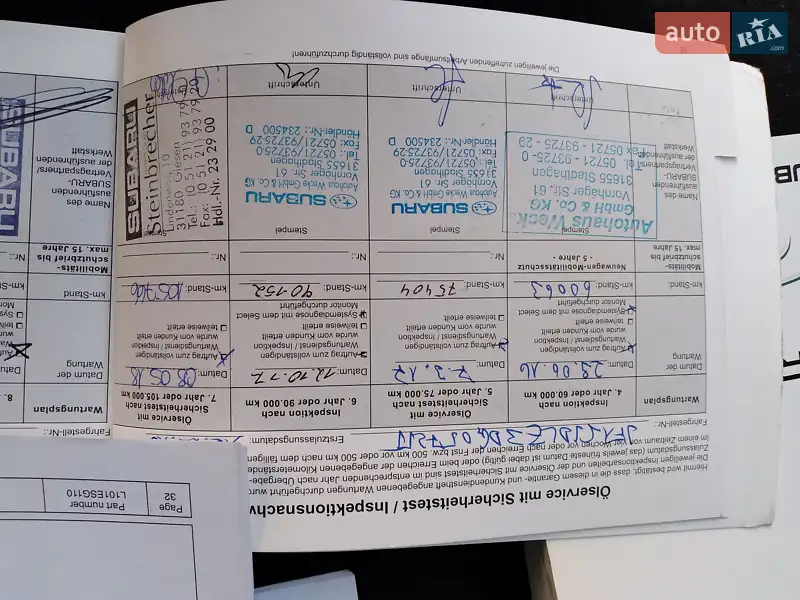 auto RIA.com
Ölservice mit Sicherheitstest / Inspektionsnachw
Hiermit wird bestätigt, dass die in diesem Garantie- und Kundendienstheft angegebenen Wartungen durchgeführt wurd
Die jeweiligen Inspektionsarbeiten und der Ölservice mit Sicherheitstest sind im entsprechenden Jahr nach Übergabe-
Zulassungsdatum (das jeweils früheste Datum ist dabei gültig) oder beim Erreichen der angegebenen Kilometerstände
im Zeitraum von vier Wochen vor oder nach Erreichen der Frist bzw. 500 km vor oder 500 km nach dem fälligen
Fahrgestell-Nr.:
Erstzulassungsdatum:
Wartungsplan
4. Jahr oder 60.000 km
Inspektion nach
5. Jahr oder 75.000 km
Ölservice mit
Sicherheitstest nach
6. Jahr oder 90.000 km
Inspektion nach
7. Jahr oder 105.000 km
Ölservice mit
Sicherheitstest nach
Datum der
Wartung
Datum: 29.06.16
Auftrag zum vollständigen
Wartungsdienst / Inspektion
wurde vom Kunden erteilt
teilweise erteilt
Systemdiagnose mit dem Select
Monitor durchgeführt
Datum: 7.3.17
Auftrag zum vollständigen
Wartungsdienst / Inspektion
wurde vom Kunden erteilt
teilweise erteilt
Systemdiagnose mit dem Select
Monitor durchgeführt
Datum: 12.10.17
Auftrag zum vollständigen
Wartungsdienst / Inspektion
wurde vom Kunden erteilt
teilweise erteilt
Systemdiagnose mit dem Select
Monitor durchgeführt
Datum: 08.05.18
Auftrag zum vollständigen
Wartungsdienst / Inspektion
wurde vom Kunden erteilt
teilweise erteilt
Systemdiagnose mit dem Select
Monitor durchgeführt
km-Stand
km-Stand: 60063
km-Stand: 75404
km-Stand: 90152
km-Stand: 105766
Mobilitäts-
schutzbrief bis
max. 15 Jahre
Neuwagen-Mobilitätsschutz
- 5 Jahre -
Nr.:
Nr.:
Nr.:
Name des
ausführenden
SUBARU-
Vertragspartners/
der ausführenden
Werkstatt
Stempel
Autohaus Weck
GmbH & Co. KG
Vornhager Str. 61
31655 Stadthagen
Tel. 05721 - 93725 - 0
Fax 05721 - 93725 - 29
Unterschrift
Stempel
SUBARU
Autohaus Wecke GmbH & Co. KG
Vornhäger Str. 61
31655 Stadthagen
Tel.: 05721/93725-0
Fax: 05721/93725-29
Händler-Nr.: 234500 D
Unterschrift
Stempel
SUBARU
Autohaus Wecke GmbH & Co. KG
Vornhäger Str. 61
31655 Stadthagen
Tel.: 05721/93725-0
Fax: 05721/93725-29
Händler-Nr.: 234500 D
Unterschrift
Stempel
SUBARU
Steinbrecher
31180 Giesen
Tel.: (0 51 21) 93 79 20
Fax: (0 51 21) 93 79 29
Hdl.-Nr. 23 29 00
Die jeweiligen zutreffenden Arbeitsumfänge sind vollständig durchzuführen!
Fahrgestell-Nr.:
Wartungsplan
8.
Datum der
Wartung
Datum
km-Stand
Mobilitäts-
schutzbrief bis
max. 15 Jahre
Name des
ausführenden
SUBARU-
Vertragspartners/
der ausführenden
Werkstatt
SUBARU
Page
32
Part number
L1101ESG110